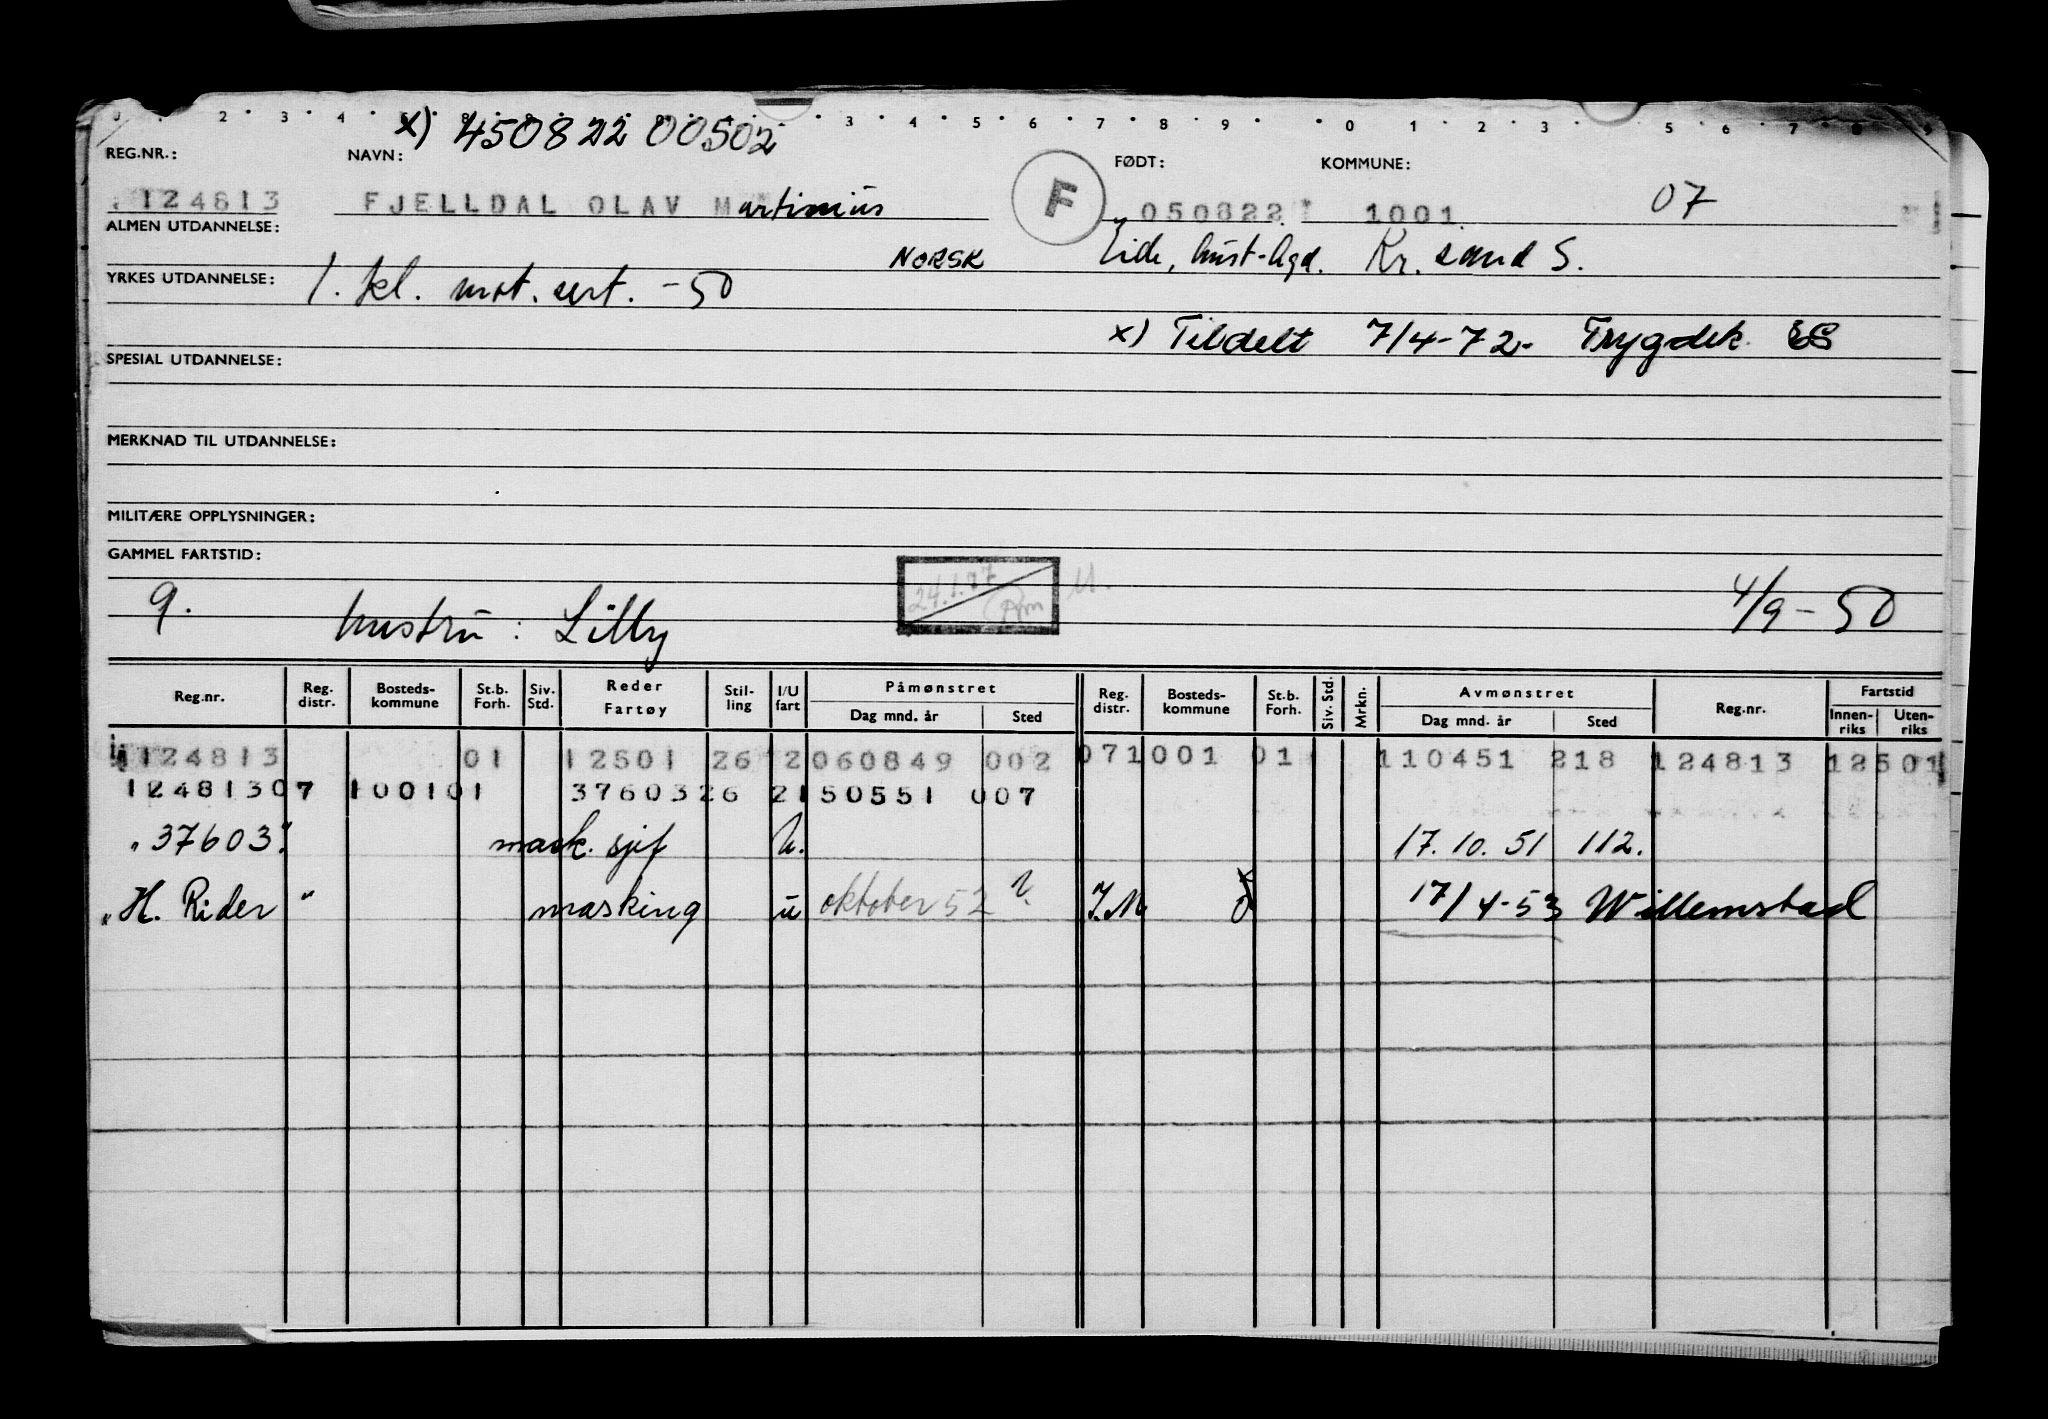 x) 450822 00502
REG.NR.: NAVN: FØDT: KOMMUNE:
124813 FJELLDAL OLAV Martinius F 050822 1001 07
ALMEN UTDANNELSE:
NORSK Eide, Aust-Agd. Kr. sand S.
YRKES UTDANNELSE: 1. kl. mot. sert. - 50
x) Tildelt 7/4-72. Trygdek.
SPESIAL UTDANNELSE:
MERKNAD TIL UTDANNELSE:
MILITÆRE OPPLYSNINGER:
GAMMEL FARTSTID:
9. hustru: Lilly 24.1.77 4/9 - 50
Reg.nr. Reg. distr. Bosteds-kommune St.b. Forh. Siv. Std. Reder Fartøy Stil-ling I/U fart Påmønstret Dag mnd. år Sted Reg. distr. Bosteds-kommune St.b. Forh. Siv. Std. Mrkn. Avmønstret Dag mnd. år Sted Reg.nr. Fartstid Innen-riks Uten-riks
124813 01 12501 26 2 060849 002 07 1001 01 110451 218 124813 12501
124813 07 1001 01 37603 26 2 150551 007
"37603" mask. sjef u. 17.10.51 112.
"H. Rider" masking u oktober 52 ? J.M 17/4-53 Willemstad